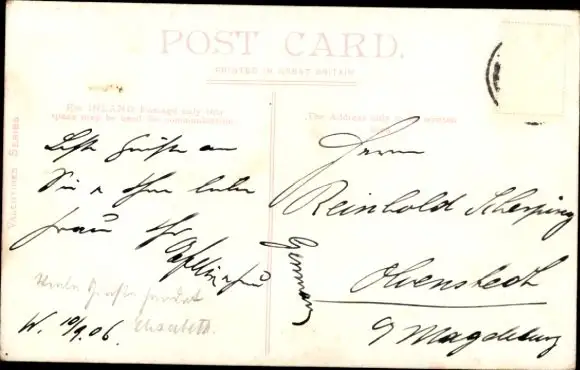 POST CARD.
PRINTED IN GREAT BRITAIN
VALENTINES SERIES
For INLAND Postage only this
space may be used for communication
The Address only
Beste Grüße an
Sie u Ihre liebe
Frau Ihr
Viele Grüße sendet
Elisabeth.
W. 10/9.06.
Herrn
Reinhold Scherping
Olvenstedt
Magdeburg
Germany